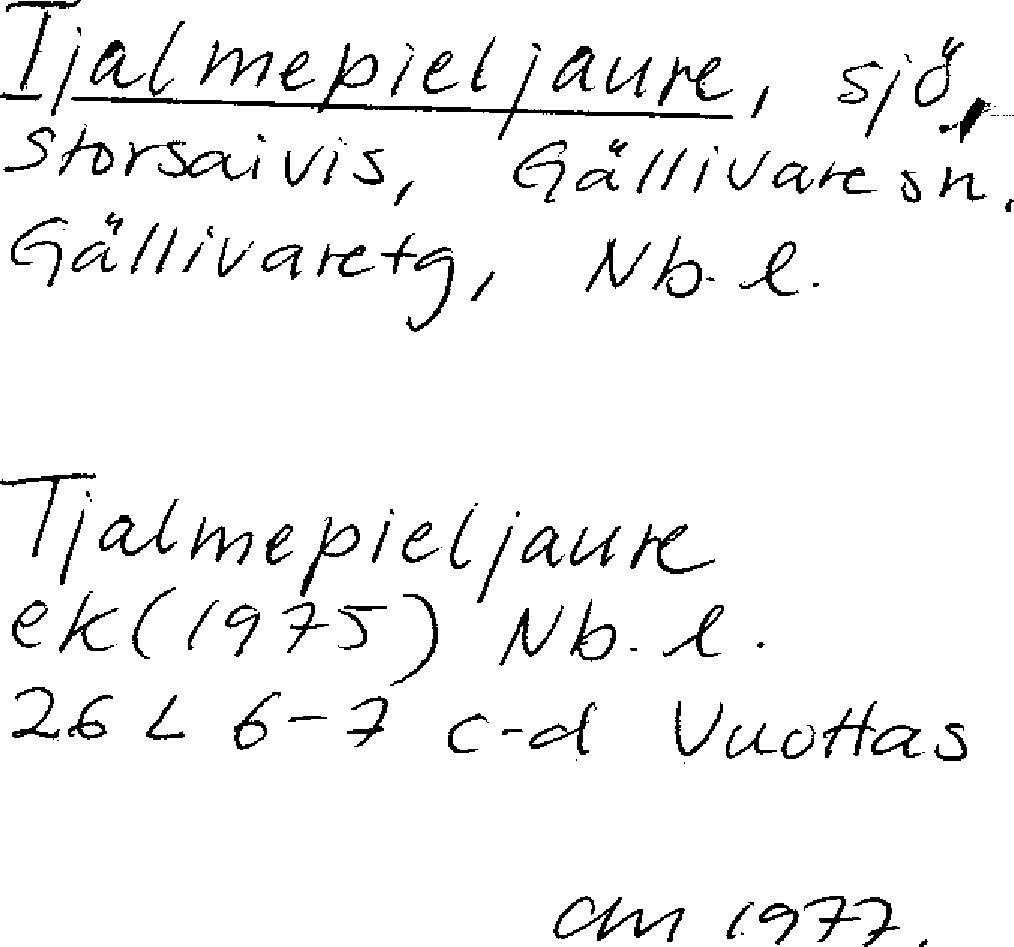 Tjalmepieljaure, sjö,
Storsaivis, Gällivare sn.
Gällivare tg, Nb. l.
Tjalmepieljaure
ek (1975) Nb. l.
26 L 6-7 c-d Vuottas
1977.